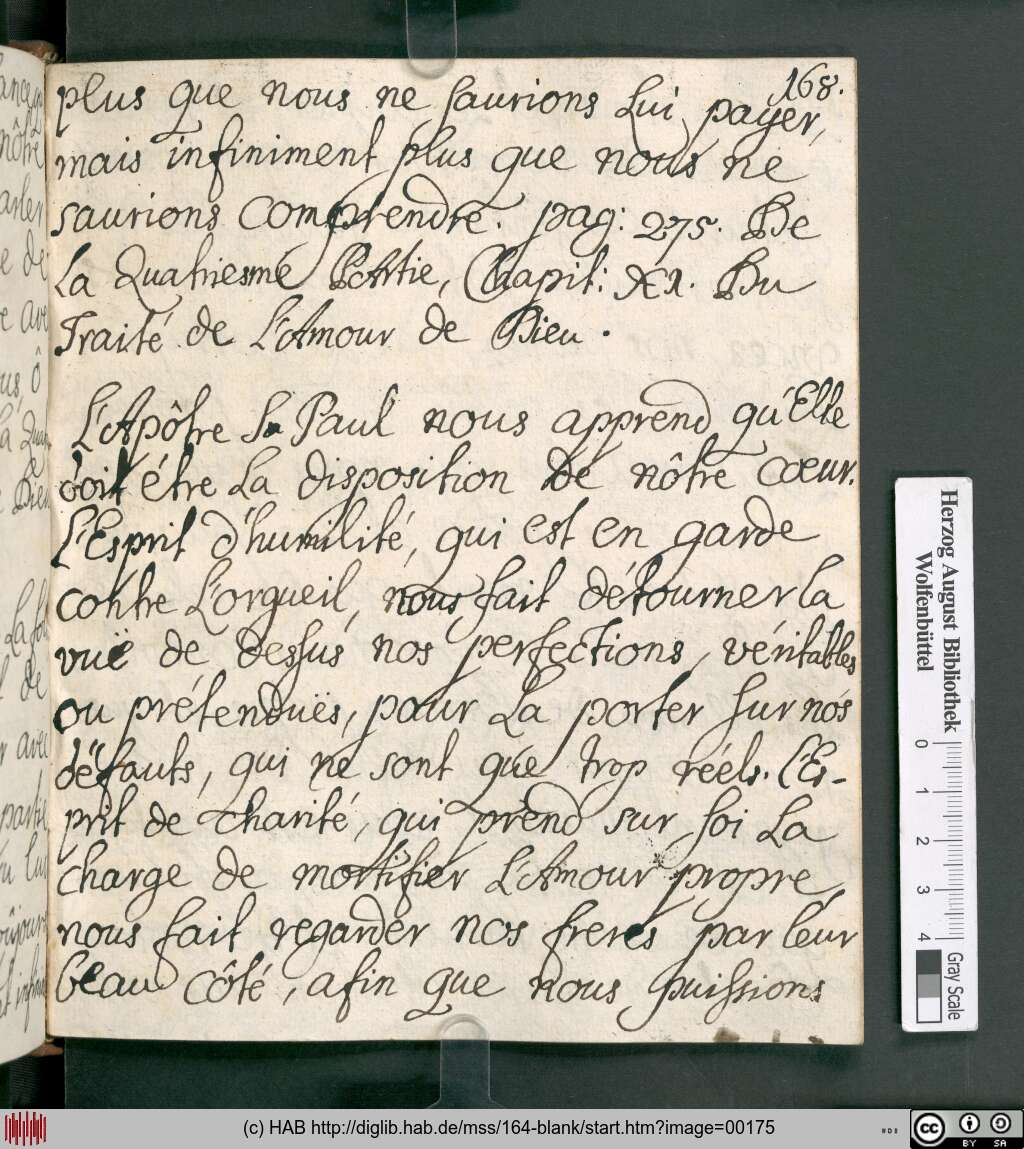 168.
plus que nous ne saurions Lui payer,
mais infiniment plus que nous ne
saurions comprendre. pag: 275. De
La Quatriesme Partie, Chapit: XI. Du
Traité de L'Amour de Dieu.
L'Apôtre St Paul nous apprend qu'Elle
doit être La disposition de nôtre cœur.
L'Esprit d'humilité, qui est en garde
contre L'orgueil, nous fait détourner la
vuë de dessus nos perfections, véritables
ou prétenduës, pour La porter sur nos
défauts, qui ne sont que trop réels. L'Es-
prit de charité, qui prend sur soi La
charge de mortifier L'Amour propre,
nous fait regarder nos freres par leur
beau côté, afin que nous puissions
Herzog August Bibliothek
Wolfenbüttel
0 1 2 3 4
Gray Scale
(c) HAB http://diglib.hab.de/mss/164-blank/start.htm?image=00175
cc BY SA